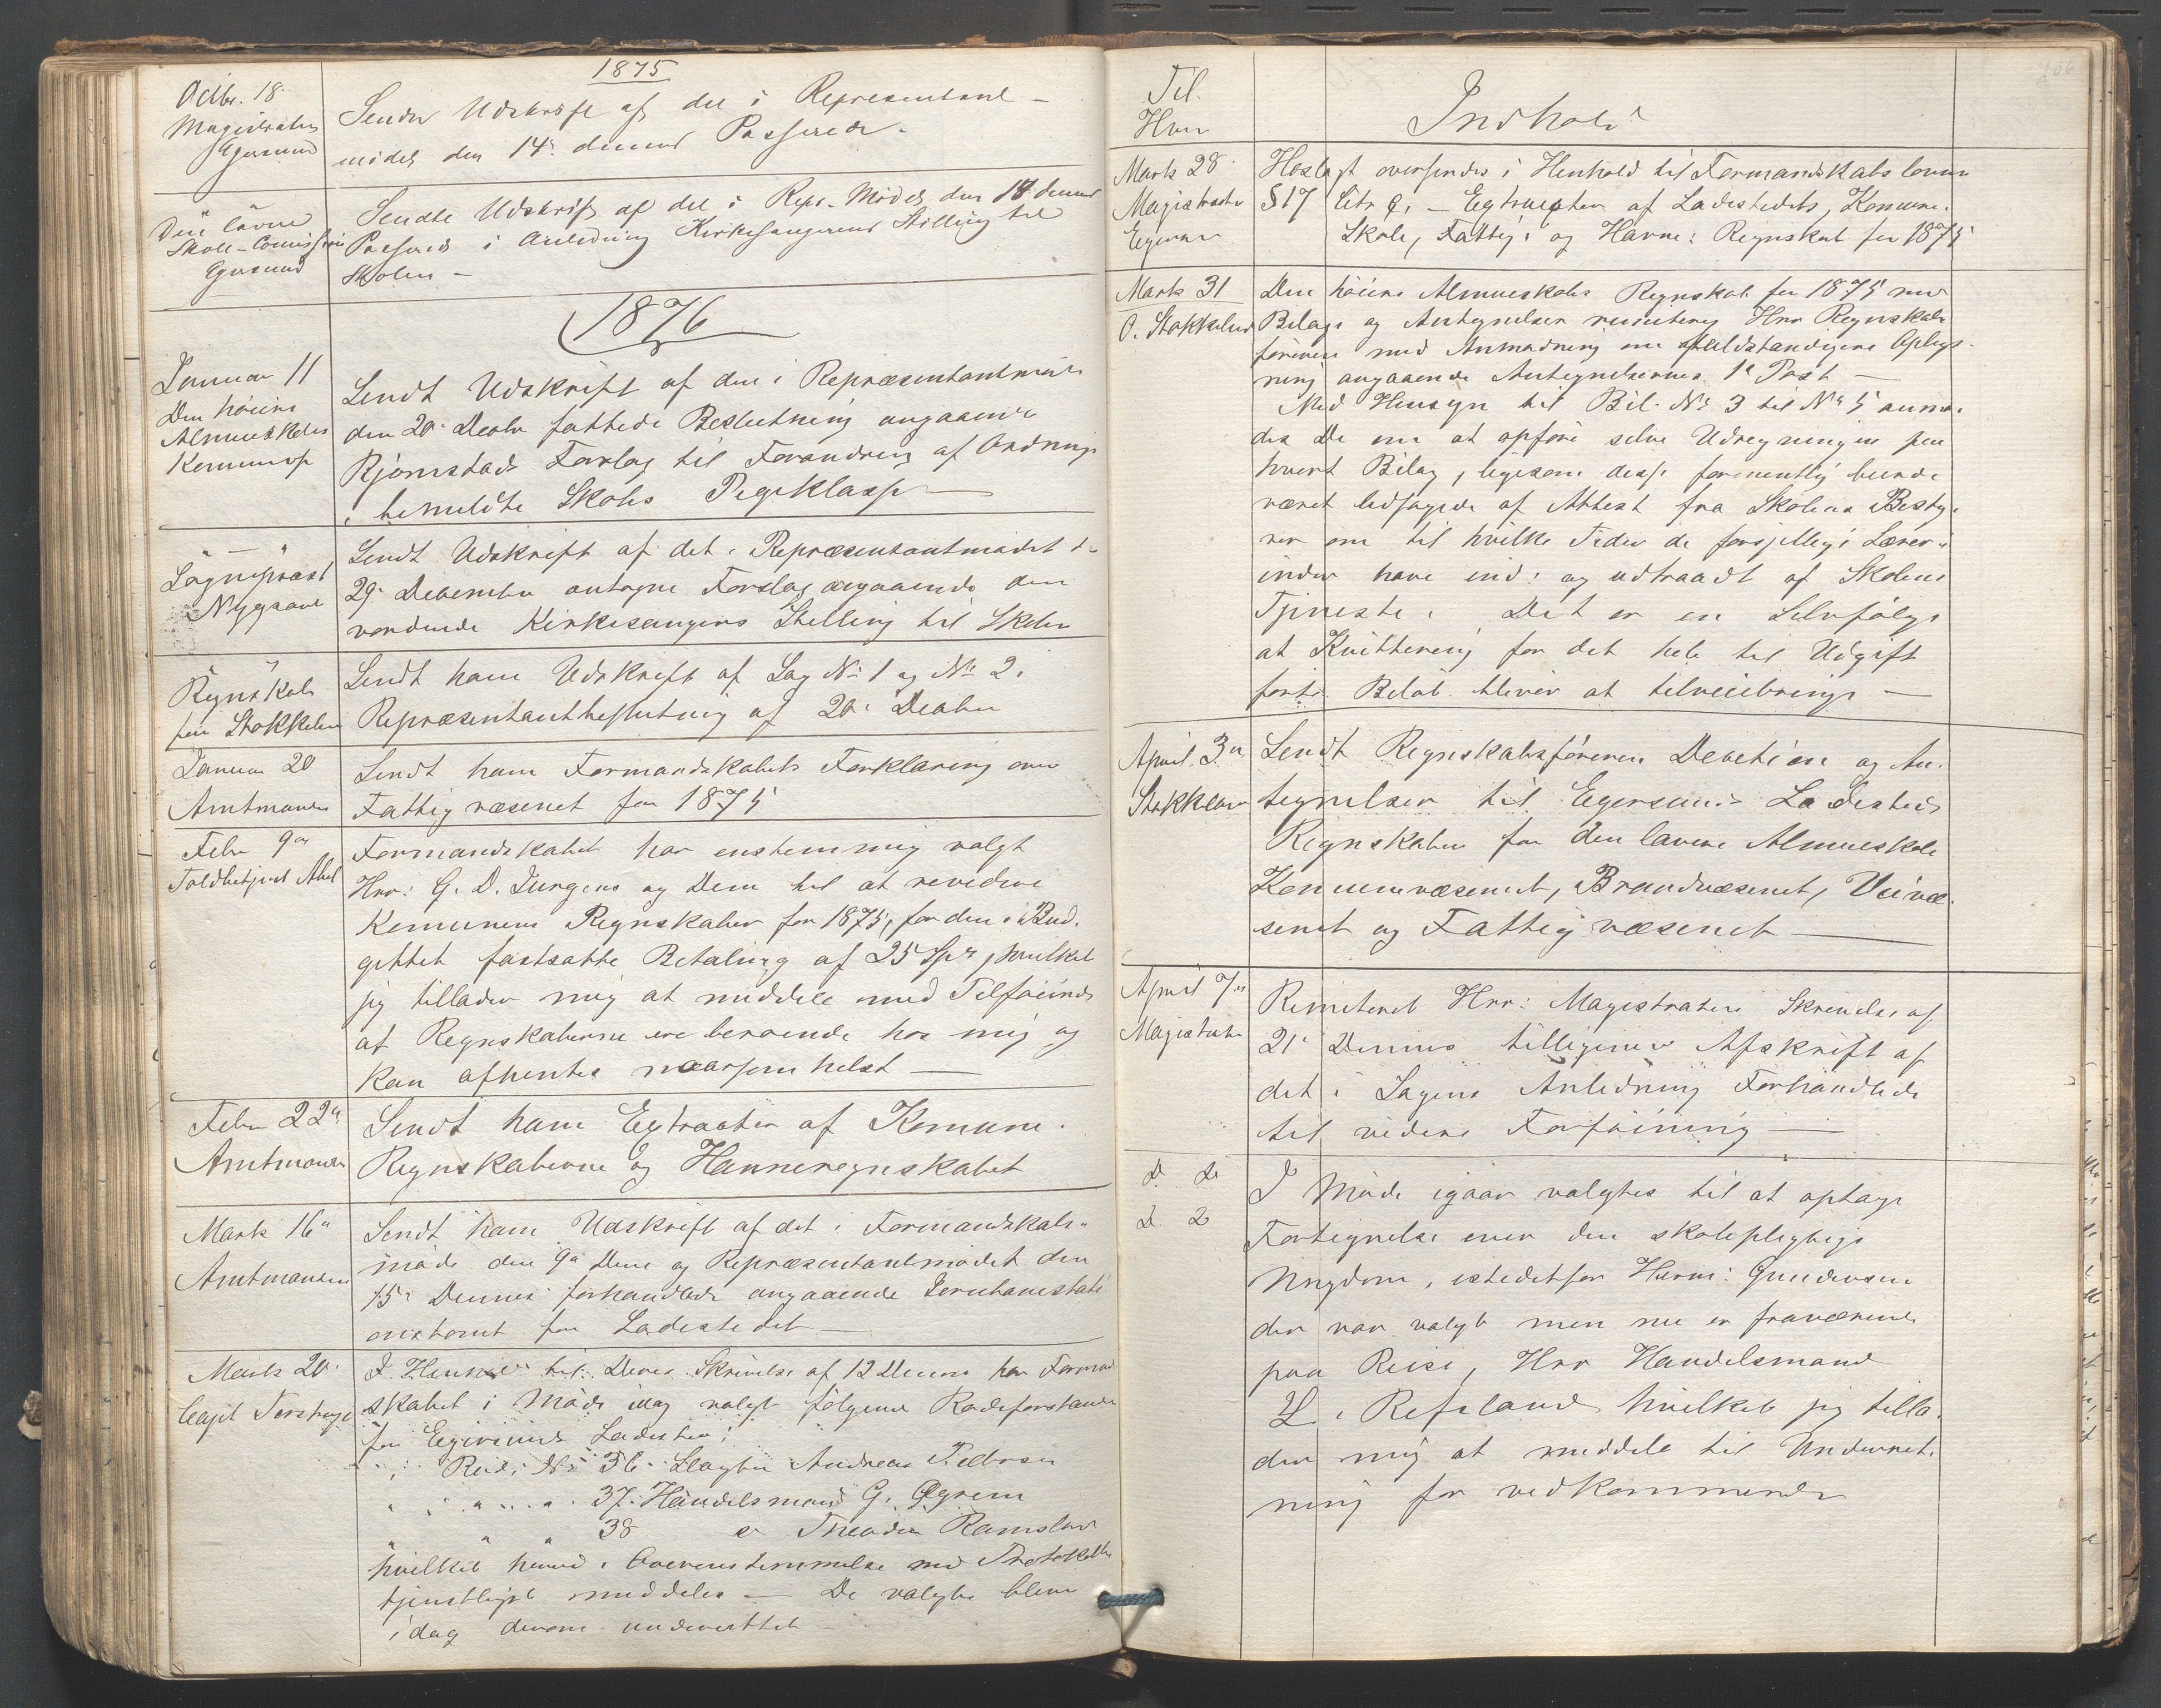 1875
Octbr. 18.
Magistraten
Egersund
Sendes Udskrift af det i Representant-
mødet den 14de dennes Passerede.
Den lavere
Skole-Comission
Egersund
Sendte Udskrift af det i Repr. Mødet den 14 dennes
Passerede i Anledning Kirkesangerens Stilling til
Skolen –
1876
Januar 11
Den høiere
Almueskoles
Kommission
Sendt Udskrift af den i Repræsentantmøde
den 29. Decbr fattede Beslutning angaaende
Rjomstads Forslag til Forandring af Ordning
i bemeldte Skoles Pigeklasse
" — "
Sogneprest
Nygaard
Sendt Udskrift af det i Repræsentantmødet d.
29. December antagne Forslag angaaende den
vordende Kirkesangers Stilling til Skolen
" "
Regnskabs
fører Stokkeland
Sendt ham Udskrift af Sag No 1 og No 2.
Repræsentantbeslutning af 29. Decbr
Januar 20
Amtmanden
Sendt ham Formandskabets Forklaring over
Fattigvæsenet for 1875
Febr 9de
Toldbetjent Abel
Formandskabet har enstemmig valgt
Hrr: G. D. Jurgens og Dem til at revidere
Komunens Regnskaber for 1875, for den i Bud-
gettet fastsatte Betaling af 25 Spd, hvilket
jeg tillader mig at meddele med Tilføiende
at Regnskaberne ere beroende hos mig og
kan afhentes naarsomhelst —
Febr 22de
Amtmanden
Sendt ham Extracter af Komune-
Regnskaberne og Havneregnskabet
Marts 16de
Amtmanden
Sendt ham Udskrift af det i Formandskabs-
møde den 9de Dns og Repræsentantmødet den
15de Dennes forhandlede angaaende Jernbanestati
onstomt for Ladestedet —
Marts 20.
Capt
I Henhold til Deres Skrivelse af 12 Dennes har Formand
skabet i Møde idag valgt følgende Rodeforstander
for Egersunds Ladested:
i Rode No 36. Andreas Pedersen
" " " 37. Handelsmand G.
" " 38 " Theodor Ramsland
hvilket herved i Overensstemmelse med Protokollen
tjenstligst meddeles — De valgte bleve
idag derom underrettet –
Til
Hvem
Indhold
Marts 28.
Magistraten
Egersund
Hoslagt oversendes i Henhold til Formandskabsloven
§ 17 Litr – Extracter af Ladestedets, Komune-
Skole, Fattig- og Havne- Regnskab for 1875
Marts 31
O. Stokkeland
Den høiere Almueskoles Regnskab for 1875 med
Bilage og Antegnelser remitteres Hrr Regnskabs
føreren med Anmodning om fuldstændigere Oplys-
ning angaaende Antegnelsernes 1ste Post —
Med Hensyn til Bil. No 3 til No 5 anmo-
des De om at opføre selve Udregningen paa
hvert Bilag, ligesom disse formentlig burde
været ledsagede af Attest fra Skolens Besty-
rer om til hvilke Tider de forsjellige Lærer-
inder have ind- og udtraadt af Skolens
Tjeneste. Det er en Selvfølge
at Kvittering for det hele til Udgift
førte Beløb bliver at tilveiebringe —
April 3de
Stokkeland
Sendt Regnskabsføreren Decision og An-
tegnelser til Egersunds Ladesteds
Regnskaber for den lavere Almueskole
Komunevæsenet, Brandvæsenet, Veivæ-
senet og Fattigvæsenet —
April 7de
Magistraten
Remiteret Hrr: Magistratens Skrivelse af
21. Dennes tilligemed Afskrift af
det i Sagens Anledning Forhandlede
til videre Forføining —
Do Do
Do Do
I Møde igaar valgtes til at optage
Fortegnelse over den skolepligtige
Ungdom, istedetfor Herm: Gundersen
der var valgt men nu er fraværende
paa Reise, Hrr Handelsmand
Refsland hvilket jeg tilla-
der mig at meddele til Underret-
ning for vedkommende